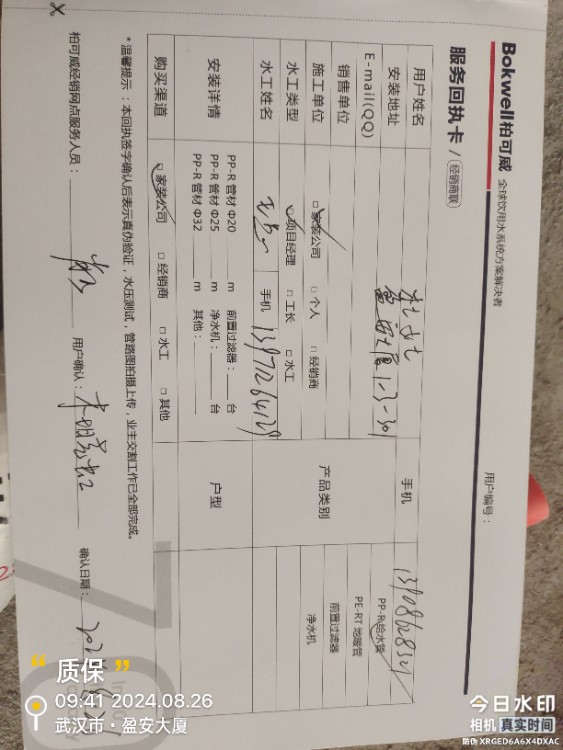 Bokwell柏可威 全球饮用水系统方案解决者
服务回执卡 / 经销商联
用户编号：
用户姓名
手机
安装地址 1-3-301
E-mail(QQ)
销售单位
产品类别
PP-R给水管
PE-RT地暖管
前置过滤器
净水机
施工单位 □家装公司 □个人 □经销商
水工类型 □项目经理 □工长 □水工
水工姓名 手机
安装详情
PP-R 管材 Φ20 m 前置过滤器： 台
PP-R 管材 Φ25 m 净水机： 台
PP-R 管材 Φ32 m 其他：
户型
购买渠道 □家装公司 □经销商 □水工 □其他
*温馨提示：本回执签字确认后表示真伪验证，水压测试，管路图拍摄上传，业主交割工作已全部完成。
柏可威经销网点服务人员： 用户确认： 确认日期：
质保
09:41 2024.08.26
武汉市·盈安大厦
今日水印
相机 真实时间
防伪 XRGED6A6X4DXAC